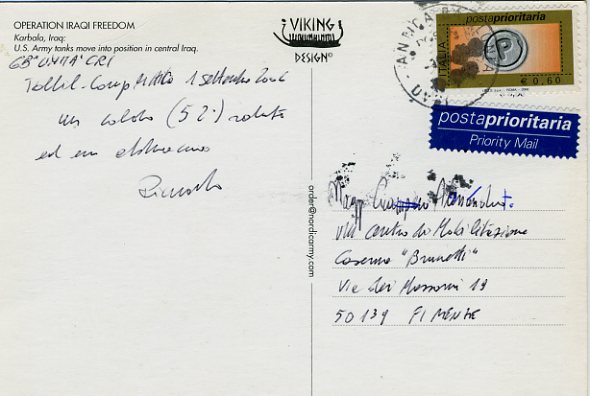 OPERATION IRAQI FREEDOM
Karbala, Iraq:
U.S. Army tanks move into position in central Iraq.
68ª UNITA' CRI
Tallil - Camp Mittica 1 settembre 2006
un caldo (52°) saluto
ed un abbraccio
Riccardo
VIKING
DESIGN®
order@nordicarmy.com
postaprioritaria
ITALIA
€ 0,60
postaprioritaria
Priority Mail
VIII Centro di Mobilitazione
Caserma "Brunetti"
Via dei Massoni 19
50139 FIRENZE